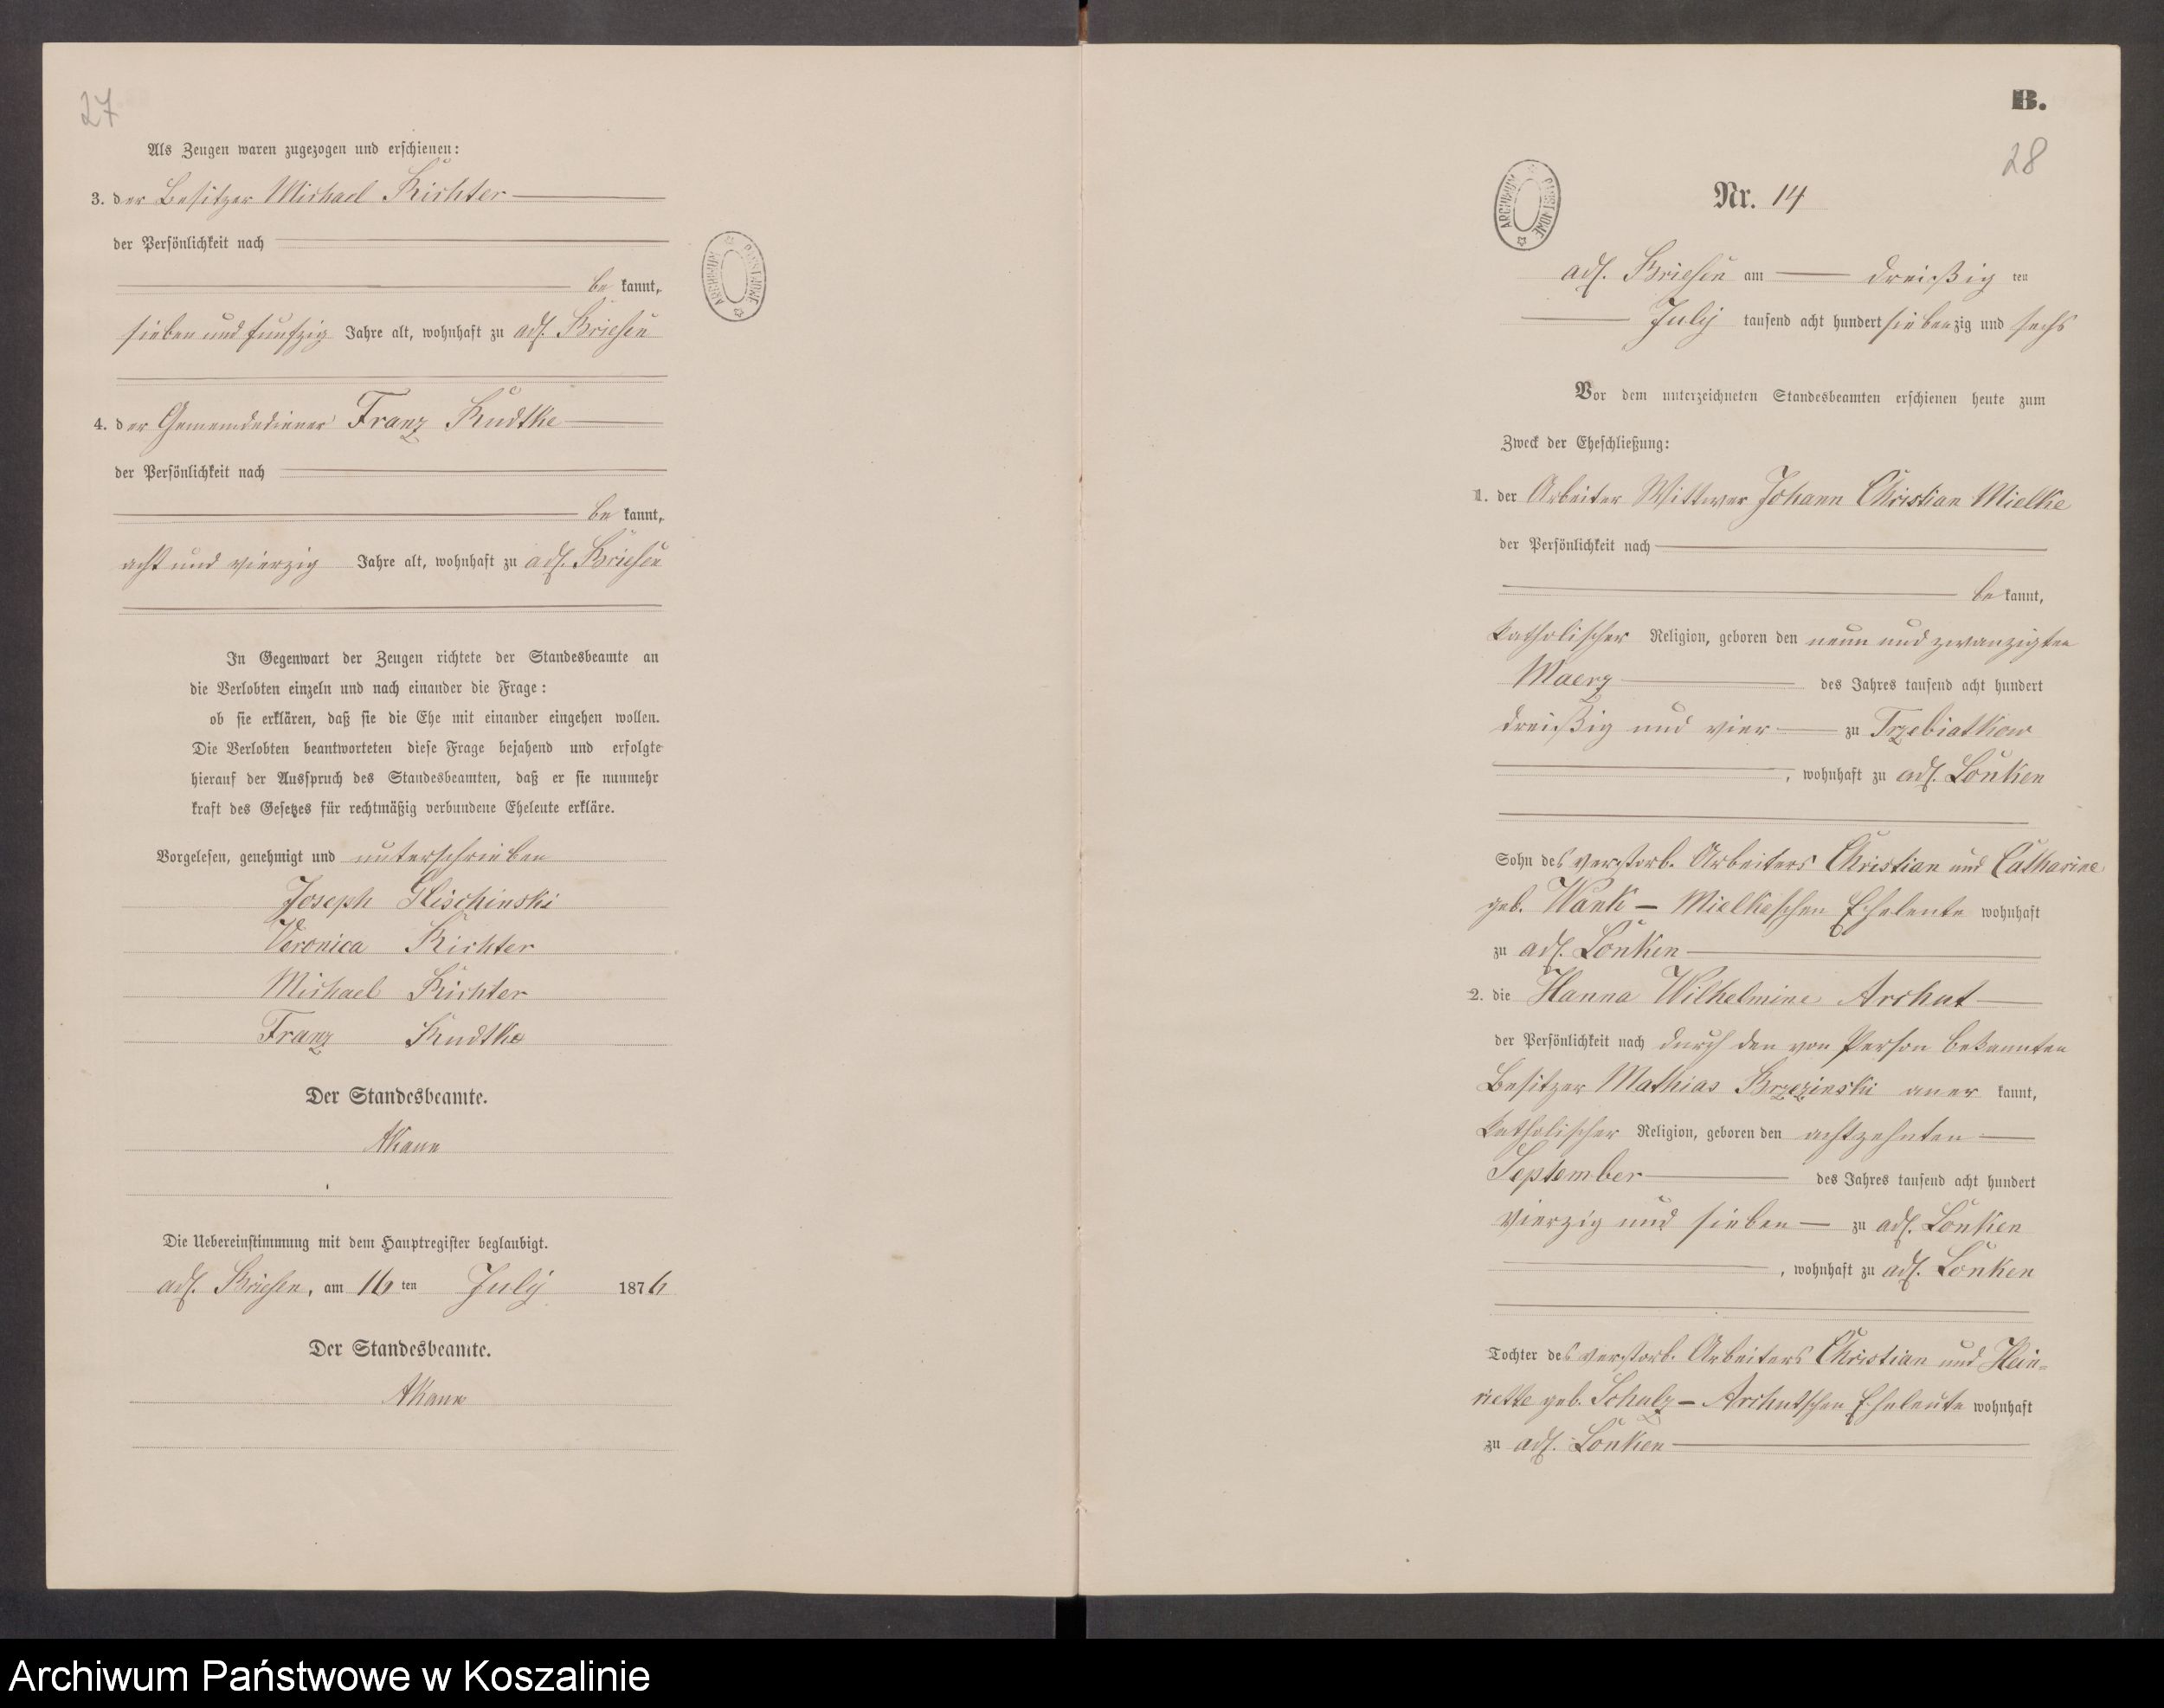 27
Als Zeugen waren zugezogen und erschienen:
3. der Besitzer Michael Richter
der Persönlichkeit nach
be kannt,
sieben und funfzig Jahre alt, wohnhaft zu adl. Briesen
4. der Gemeindediener Franz Rudtke
der Persönlichkeit nach
be kannt,
acht und vierzig Jahre alt, wohnhaft zu adl. Briesen
In Gegenwart der Zeugen richtete der Standesbeamte an
die Verlobten einzeln und nach einander die Frage:
ob sie erklären, daß sie die Ehe mit einander eingehen wollen.
Die Verlobten beantworteten diese Frage bejahend und erfolgte
hierauf der Ausspruch des Standesbeamten, daß er sie nunmehr
kraft des Gesetzes für rechtmäßig verbundene Eheleute erkläre.
Vorgelesen, genehmigt und unterschrieben
Joseph Glischinski
Veronica Richter
Michael Richter
Franz Rudtke
Der Standesbeamte.
Die Uebereinstimmung mit dem Hauptregister beglaubigt.
adl. Briesen, am 16 ten July 1876
Der Standesbeamte.
B.
28
ARCHIWUM PAŃSTWOWE
Nr. 14
adl. Briesen am dreißig ten
July tausend acht hundert siebenzig und sechs
Vor dem unterzeichneten Standesbeamten erschienen heute zum
Zweck der Eheschließung:
1. der Arbeiter Wittwer Johann Christian Mielke
der Persönlichkeit nach
be kannt,
katholischer Religion, geboren den neun und zwanzigten
Maerz des Jahres tausend acht hundert
dreißig und vier zu Trzebiatkow
, wohnhaft zu adl. Lonken
Sohn des verstorb. Arbeiters Christian und Catharine
geb. Wank - Mielkeschen Eheleute wohnhaft
zu adl. Lonken
2. die Hanna Wilhelmine Archut
der Persönlichkeit nach durch den von Person bekannten
Besitzer Mathias Brzezinski aner kannt,
katholischer Religion, geboren den achtzehnten
September des Jahres tausend acht hundert
vierzig und sieben zu adl. Lonken
, wohnhaft zu adl. Lonken
Tochter des verstorb. Arbeiters Christian und Hein-
riette geb. Schulz - Archutschen Eheleute wohnhaft
zu adl. Lonken
Archiwum Państwowe w Koszalinie